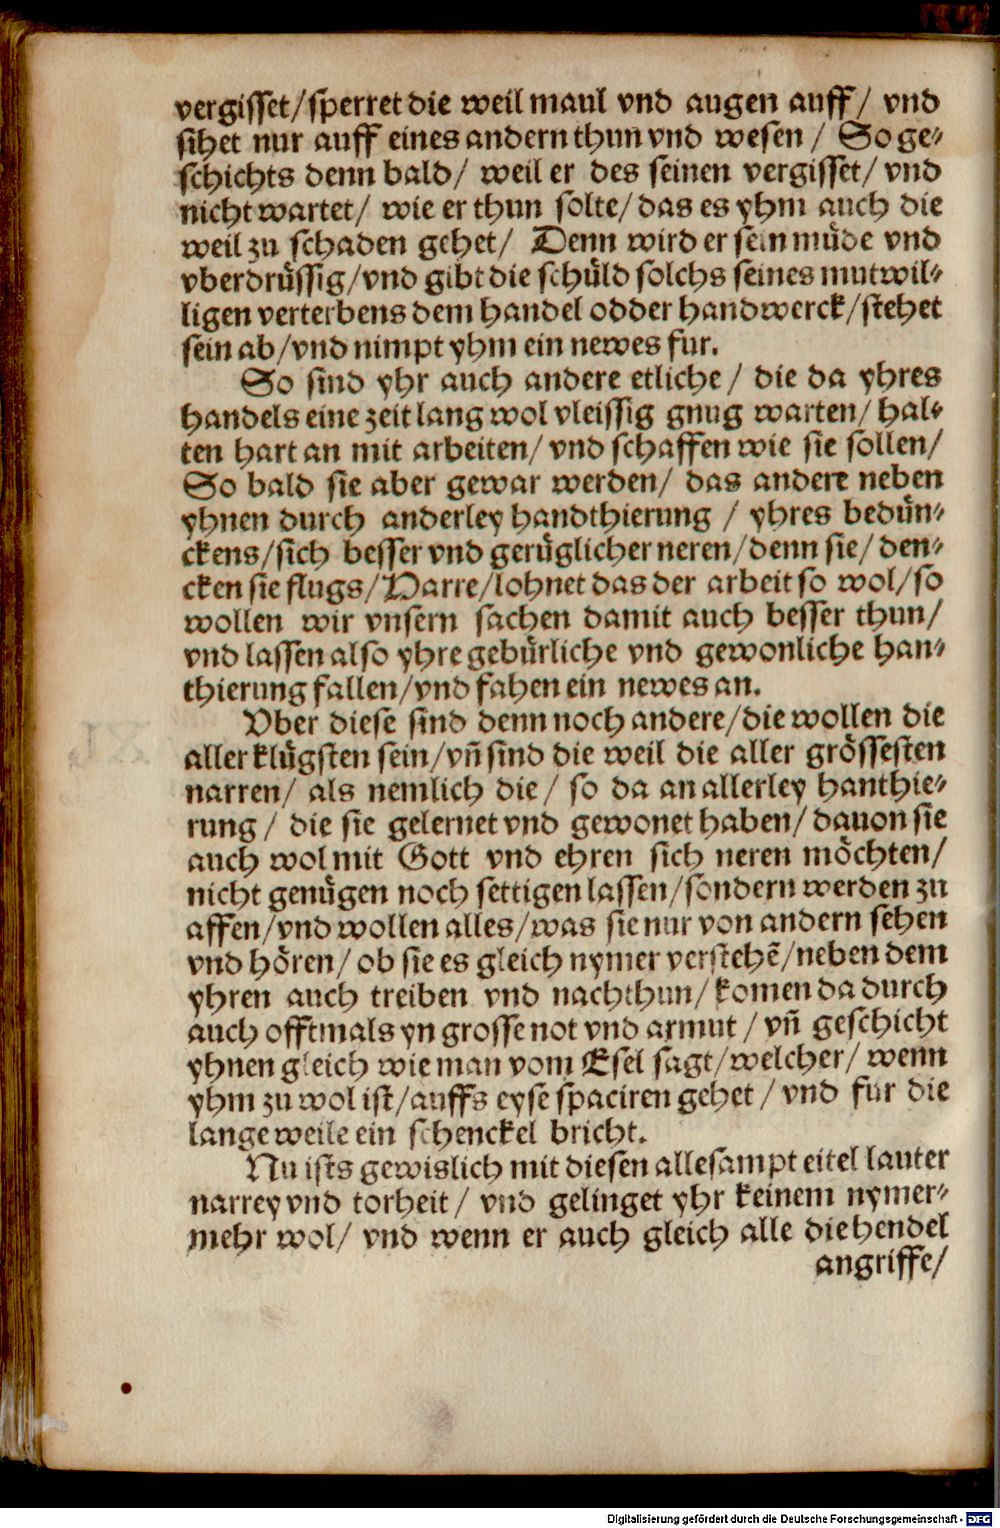 vergisset/sperret die weil maul vnd augen auff/ vnd
sihet nur auff eines andern thun vnd wesen / So ge⸗
schichts denn bald/ weil er des seinen vergisset/ vnd
nicht wartet/ wie er thun solte/ das es yhm auch die
weil zu schaden gehet/ Denn wird er sein müde vnd
vberdrüssig/vnd gibt die schüld solchs seines mutwil⸗
ligen verterbens dem handel odder handwerck/stehet
sein ab/vnd nimpt yhm ein newes fur.
So sind yhr auch andere etliche / die da yhres
handels eine zeit lang wol vleissig gnug warten/ hal⸗
ten hart an mit arbeiten/ vnd schaffen wie sie sollen/
So bald sie aber gewar werden/ das andere neben
yhnen durch anderley handthierung / yhres bedün⸗
ckens/sich besser vnd gerüglicher neren/denn sie/ den⸗
cken sie flugs/Narre/lohnet das der arbeit so wol/so
wollen wir vnsern sachen damit auch besser thun/
vnd lassen also yhre gebürliche vnd gewonliche han⸗
thierung fallen/vnd fahen ein newes an.
Vber diese sind denn noch andere/die wollen die
aller klügsten sein/vñ sind die weil die aller grössesten
narren/ als nemlich die/ so da an allerley hanthie⸗
rung/ die sie gelernet vnd gewonet haben/ dauon sie
auch wol mit Gott vnd ehren sich neren möchten/
nicht genügen noch settigen lassen/sondern werden zu
affen/vnd wollen alles/was sie nur von andern sehen
vnd hören/ ob sie es gleich nymer verstehẽ/neben dem
yhren auch treiben vnd nachthun/ komen da durch
auch offtmals yn grosse not vnd armut / vñ geschicht
yhnen gleich wie man vom Esel sagt/welcher/ wenn
yhm zu wol ist/auffs eyse spaciren gehet / vnd fur die
lange weile ein schenckel bricht.
Nu ists gewislich mit diesen allesampt eitel lauter
narrey vnd torheit / vnd gelinget yhr keinem nymer⸗
mehr wol/ vnd wenn er auch gleich alle die hendel
angriffe/
Digitalisierung gefördert durch die Deutsche Forschungsgemeinschaft - DFG